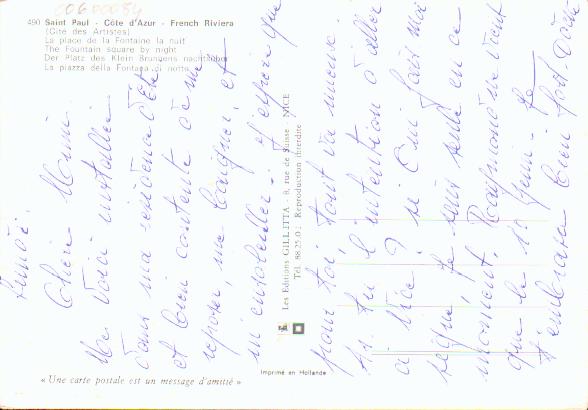 C0600084
490 Saint Paul - Côte d'Azur - French Riviera
(Cité des Artistes)
La place de la Fontaine la nuit
The Fountain square by night
Der Platz des Klein Brunnens nachtsüber
La piazza della Fontana di notte
Lundi.
Chère Mimi.
Me voici installée
dans ma résidence d'été
et bien contente de me
reposer, me baigner, et
m'ensoleiller. J'espère que
pour toi, tout va mieux.
As tu l'intention d'aller
à Nice? si oui fais moi
signe, je suis seule en ce
moment, Raymonde vient
que le 15 Juin. Je
t'embrasse bien fort
Les Editions GILLETTA - 8, rue de Suisse - NICE
Tél. 88.25.01 Reproduction interdite
« Une carte postale est un message d'amitié »
Imprimé en Hollande